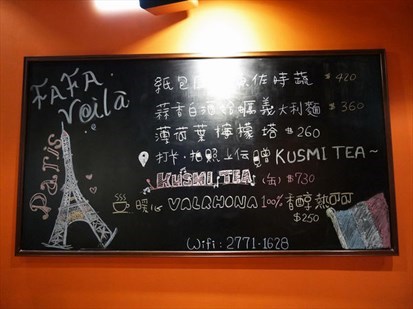 FAFA
Voilà
Paris
紙包 佐時蔬 $420
蒜香白酒蛤蠣義大利麵 $360
薄荷葉檸檬塔 $260
打卡·拍照上傳 KUSMI TEA~
KUSMI TEA (缶) $730
暖心 VALRHONA 100% 香醇熱可可
$250
Wifi: 2771-1628